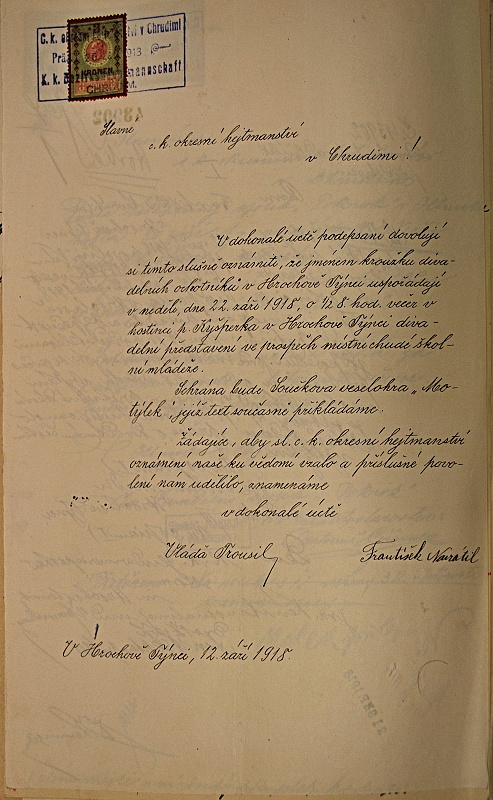 C. k. okresní hejtmanství v Chrudimi
1918
K. k. Bezirkshauptmannschaft
KRONEN
Slavné
c. k. okresní hejtmanství
v Chrudimi!
V dokonalé úctě podepsaní dovolují
si tímto slušně oznámiti, že jménem kroužku diva-
delních ochotníků v Hrochově Týnci uspořádají
v neděli, dne 22. září 1918, o ½ 8. hod. večer v
hostinci p. Ryšperka v Hrochově Týnci diva-
delní představení ve prospěch místní chudé škol-
ní mládeže.
Sehrána bude Součkova veselohra „Mo-
týlek", jejíž text současně přikládáme.
Žádajíce, aby sl. c. k. okresní hejtmanství
oznámení naše ku vědomí vzalo a příslušné povo-
lení nám udělilo, znamenáme
v dokonalé úctě
Vláďa Prousil František Navrátil
V Hrochově Týnci, 12. září 1918.